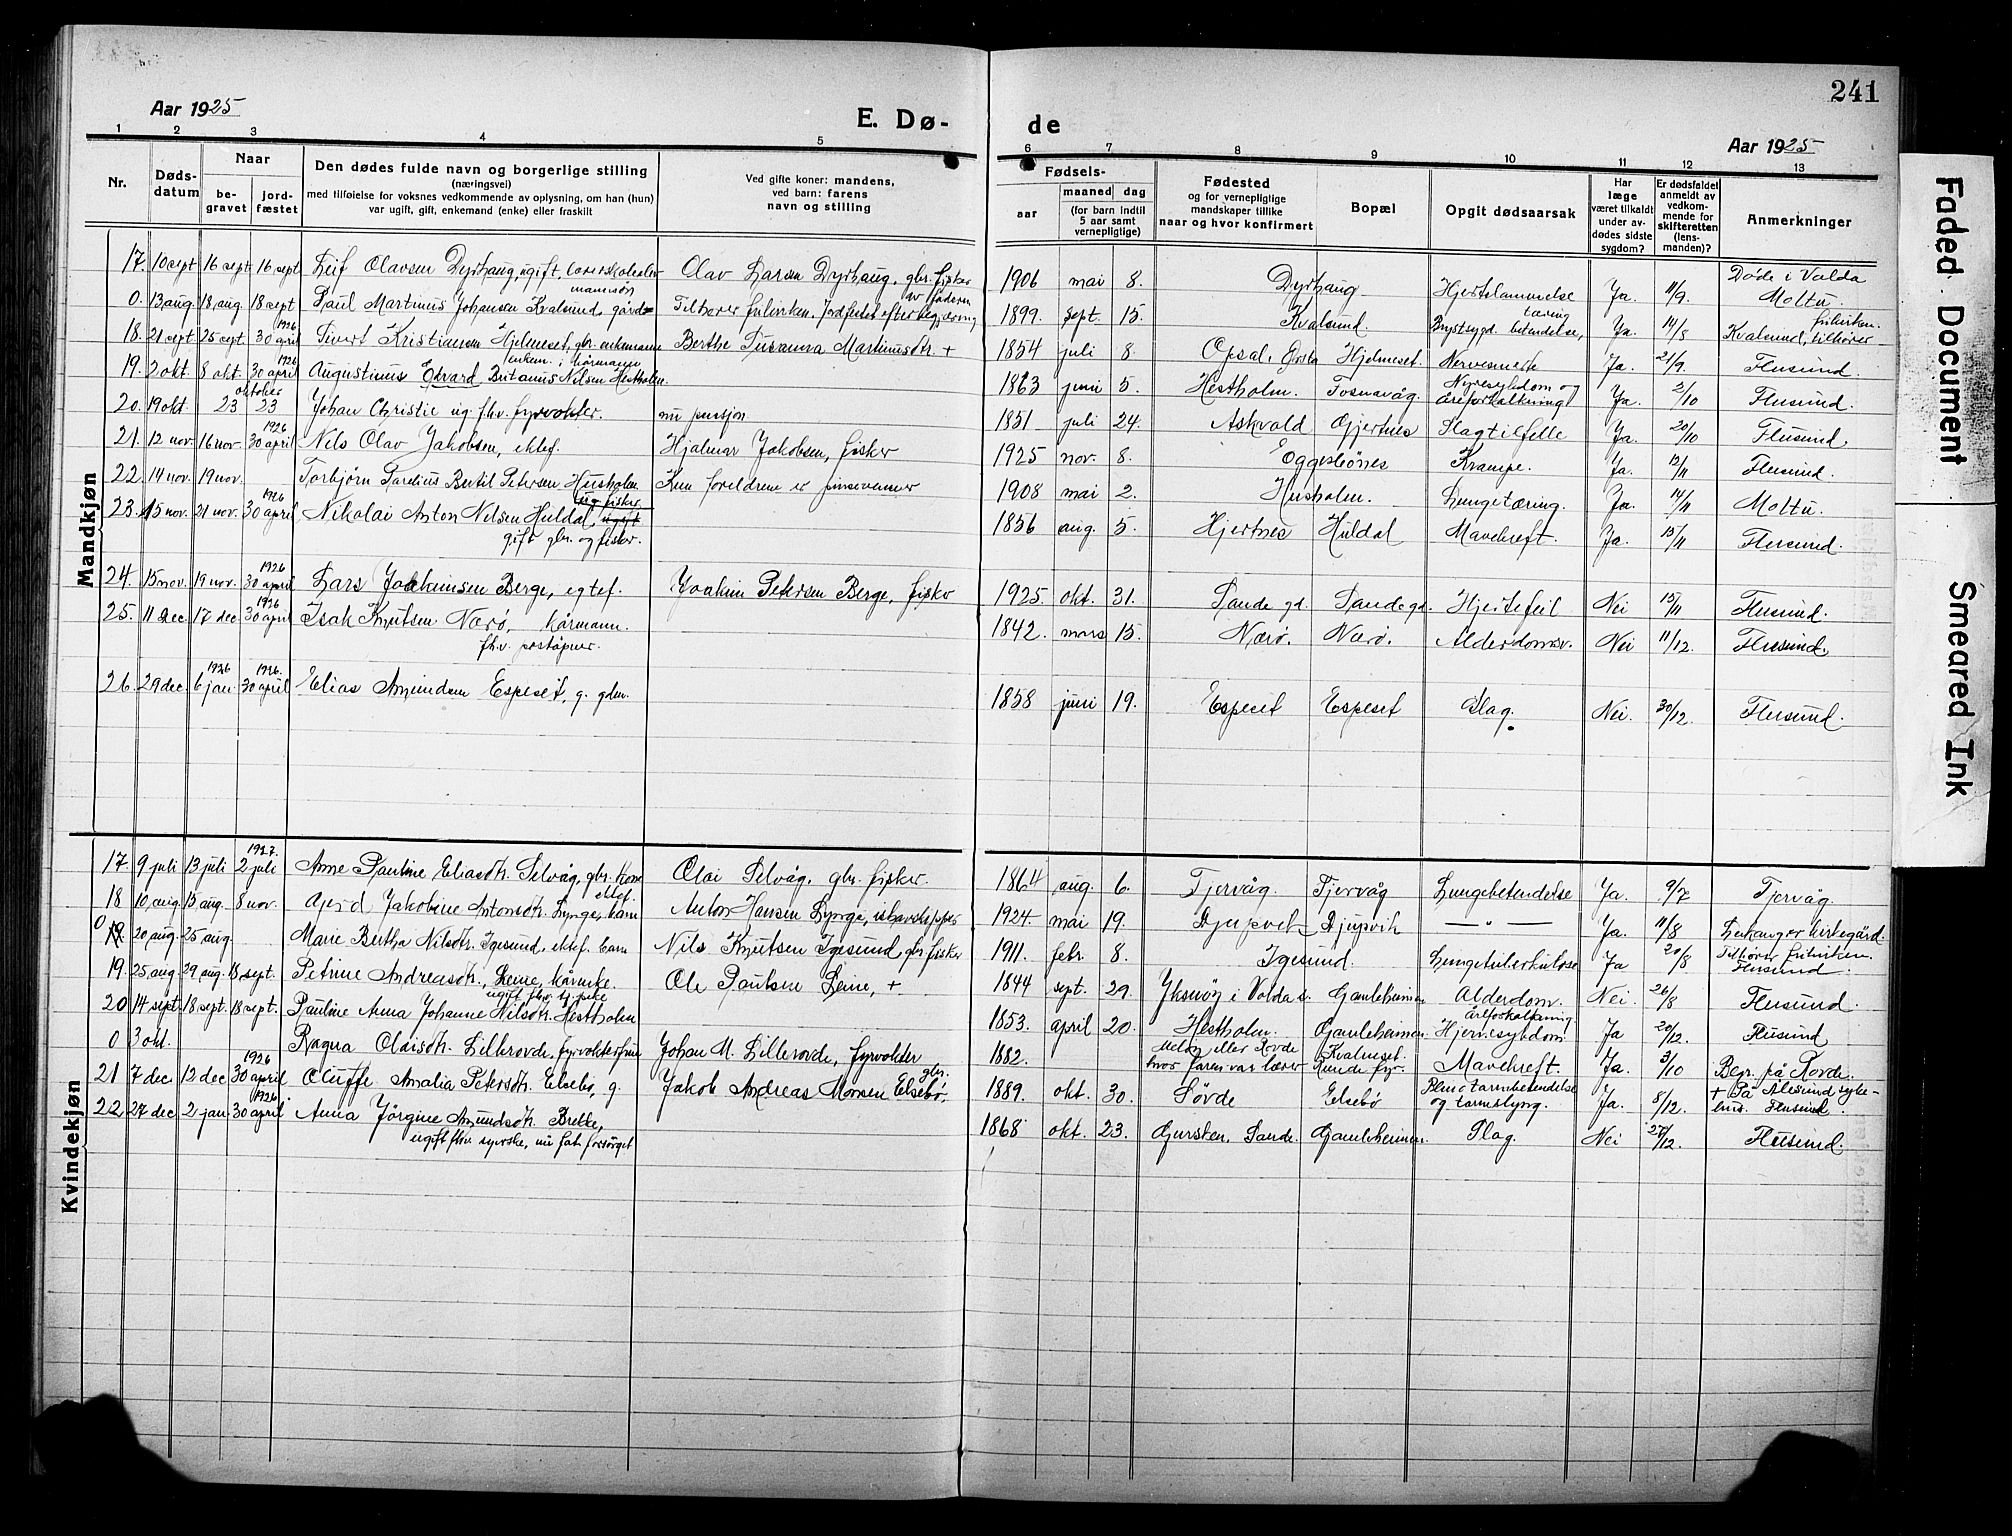 241
Aar 1925
E. Dø- de
Aar 1925
1 2 3 4 5 6 7 8 9 10 11 12 13
Nr.
Døds-
datum
Naar
be-
gravet
jord-
fæstet
Den dødes fulde navn og borgerlige stilling
(næringsvei)
med tilføielse for voksnes vedkommende av oplysning, om han (hun)
var ugift, gift, enkemand (enke) eller fraskilt
Ved gifte koner: mandens,
ved barn: farens
navn og stilling
Fødsels-
aar
maaned dag
(for barn indtil
5 aar samt
vernepligtige)
Fødested
og for vernepligtige
mandskaper tillike
naar og hvor konfirmert
Bopæl
Opgit dødsaarsak
Har
læge
været tilkaldt
under av-
dødes sidste
sygdom?
Er dødsfaldet
anmeldt av
vedkom-
mende for
skifteretten
(lens-
manden)?
Anmerkninger
Mandkjøn
17. 10 sept 16 sept 16 sept Leif Olavsen Dyrhaug, ugift, Olav Larsen Dyrhaug, gbr. fisker 1906 mai 8. Dyrhaug Hjertelammelse Ja. 11/9. Døde i Volda Moltu.
0. 13 aug. 18. aug. 18 sept Paul Martinus Johansen Kvalsund, gårdmannsøn Tilhører frikirken. Jordfestet efter begjæring av faderen 1899. sept. 15. Kvalsund. Brystsygd. betendelse, tæring Ja. 14/8 Kvalsund, tilhører frikirken.
18. 21 sept 25 sept. 1926 30 april Sivert Kristiansen Hjelmeset, gbr. enkemann Berthe Susanna Martinusdtr. + 1854 juli 8. Opsal, Ørsta Hjelmeset. Nervesmerte Ja. 21/9. Flusund
19. 2 okt. 8 okt. 1926 30 april Augustinus Edvard Britanus Nilsen Hestholm. enkem. kårmann 1863 juni 5. Hestholm. Fosnavåg. Nyresykdom og åreforkalkning Ja. 2/10 Flusund.
20. 19 okt. 23 oktober 23 Johan Christie ug. fhv. fyrvokter. nu pensjon 1851 juli 24. Askvold Gjertnes Slagtilfelle Ja. 20/10 Flusund,
21. 12 nov. 16 nov. 1926 30 april Nils Olav Jakobsen, ektef. Hjalmar Jakobsen, fisker 1925 nov. 8. Eggesbönes Krampe. Ja. 12/11 Flusund.
22. 14 nov. 19 nov. Torbjørn Parelius Bertil Petersen Husholm ug. fisker Kun foreldrene er pinsevenner 1908 mai 2. Husholm. Lungetæring. Ja. 14/11 Moltu.
23. 15 nov. 21 nov. 1926 30 april Nikolai Anton Nilsen Huldal, ugift gift gbr. og fisker. 1856 aug. 5. Hjertnes Huldal Mavekreft. Ja. 15/11 Flusund.
24. 15 nov. 19 nov. 1926 30 april Lars Joakimsen Berge, egtef. Joakim Petersen Berge, fisker 1925. okt. 31. Sande gd. Sande gd. Hjertefeil Nei 15/11 Flusund.
25. 11 dec. 17 dec. 1926 30 april Isak Knutsen Nærö, kårmann. fh.v. poståpner. 1842. mars 15. Nærö. Nærö. Alderdomsv. Nei 11/12. Flusund.
26. 29 dec. 1926 6 jan 1926. 30 april Elias Amundsen Espeset, g. gdm. 1858 juni 19. Espeset Espeset Slag. Nei. 30/12. Flusund.
Kvindekjøn
17 9 juli 13 juli 1927. 2 juli Anne Pauline Eliasdtr. Selvåg, gbr. kone Olai Selvåg, gbr. fisker. 1864 aug. 6. Tjervåg. Tjervåg Lungebetendelse Ja. 9/7 Tjervåg.
18 10 aug. 15 aug. 8 nov. Gerd Jakobine Antonsdtr. Lynge, barn ektef. Anton Hansen Lynge, ishavsskipper 1924. mai 19. Djupvik Djupvik — „ — Ja. 11/8 Leikanger kirkegård
0 19. 20 aug. 25 aug. Marie Bertha Nilsdtr. Igesund, ektef. barn Nils Knutsen Igesund, gbr. fisker 1911. febr. 8. Igesund. Lungetuberkulose Ja 20/8 Tilhører frikirken. Flusund.
19. 25 aug. 29 aug. 18 sept. Petrine Andreasdtr. Leine, kårenke. Ole Paulsen Leine, + 1844 sept. 29. Yksnöy i Volda Gamleheimen Alderdom. Nei. 26/8 Flusund.
20 14 sept. 18 sept. 18 sept. Pauline Anna Johanne Nilsdtr. Hestholm ugift fhv. 1853. april 20. Hestholm. Gamleheimen. Hjernesykdom. årforkalkning Ja 20/12. Flusund
0 3 okt. Ragna Olaisdtr. Lillerovde, fyrvokterfrue Johan M. Lillerovde, fyrvokter 1882. eller Rovde hvor faren var lærer Kvalneset. Runde fyr. Mavekreft. Ja. 3/10 Begr. på Rovde.
21 7 dec 12 dec 1926 30 april Oluffe Amalia Petersdtr. Elsebø, g. Jakob Andreas Monsen Elsebö, gbr. 1889. okt. 30. Sövde Elsebö tarmbetendelse og tarmslyng. Ja. 8/12. + På Ålesund syke- hus. Flusund.
22. 27 dec 2 jan. 1926 30 april Anna Jörgine Amundsdtr. Brekke, ugift fhv. syerske, nu fat. forsörget 1868. okt. 23. Gursken, Sande. Gamleheimen. Slag. Nei 27/12. Flusund.
Faded Document
Smeared Ink